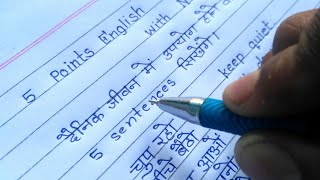 5 Points English
with
दैनिक जीवन में उपयोग होने
5 sentences सिखेंगे।
keep quiet
चुप रहो
बैठो
आओ